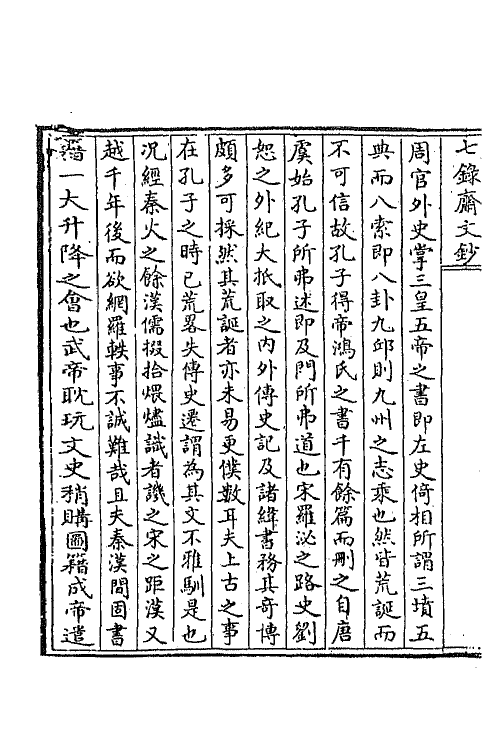 七錄齋文鈔
周官外史掌三皇五帝之書即左史倚相所謂三墳五
典而八索即八卦九邱則九州之志乘也然皆荒誕而
不可信故孔子得帝鴻氏之書千有餘篇而刪之自唐
虞始孔子所弗述即及門所弗道也宋羅泌之路史劉
恕之外紀大抵取之内外傳史記及諸緯書務其奇博
頗多可採然其荒誕者亦未易更僕數耳夫上古之事
在孔子之時已荒畧失傳史遷謂為其文不雅馴是也
況經秦火之餘漢儒掇拾煨燼識者譏之宋之距漢又
越千年後而欲網羅軼事不誠難哉且夫秦漢間固書
籍一大升降之會也武帝耽玩文史稍購圖籍成帝遣